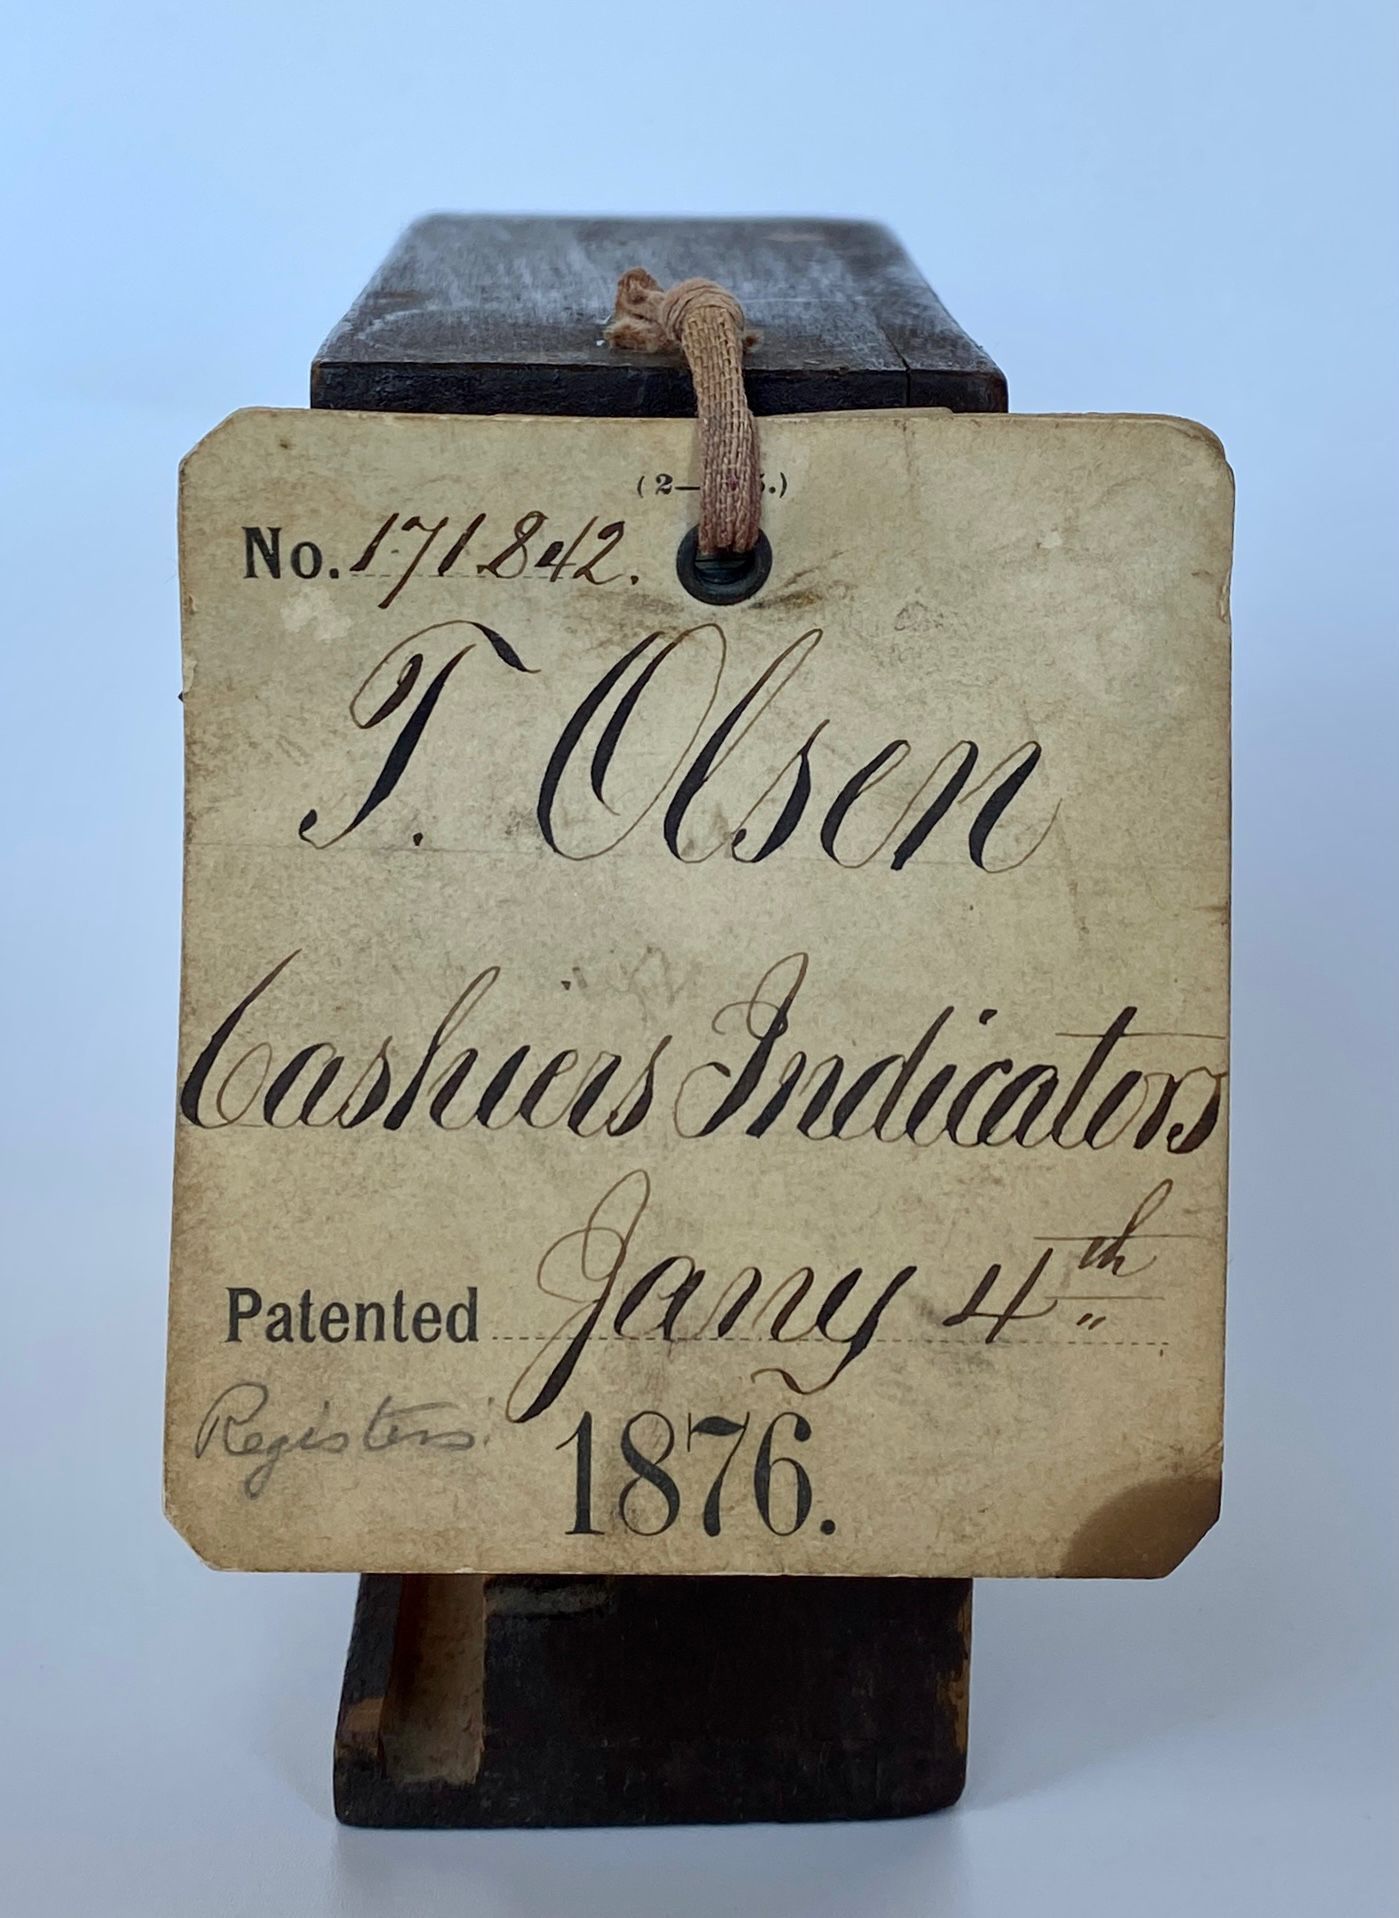 No. 171.842.
T. Olsen
Cashiers Indicators
Patented Jany 4th
Registers
1876.